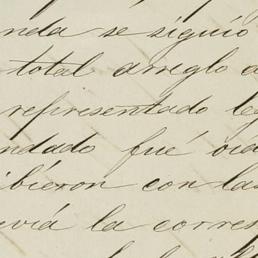 nda se siguió
total arreglo a
representado leg
ndado fué oid
bieron con las
viá la corres